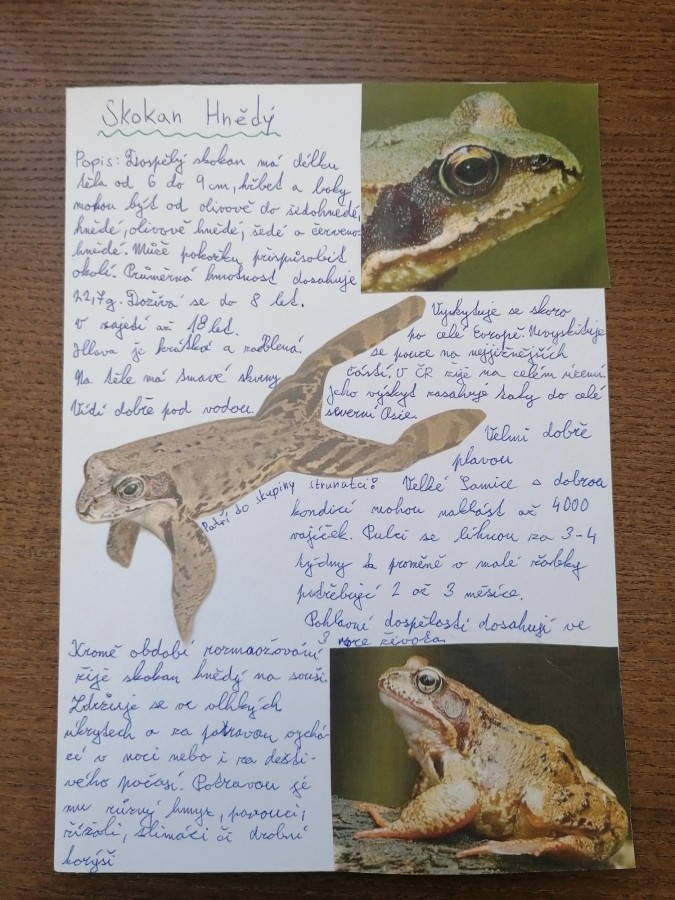 Skokan Hnědý
Popis: Dospělý skokan má délku
těla od 6 do 9 cm, hřbet a boky
mohou být od olivově do šedohnědé,
hnědé, olivově hnědé, šedé a červeno-
hnědé. Můžě pokožku přispůsobit
okolí. Průměrná hmotnost dosahuje
22,7g. Dožívá se do 8 let.
V zajetí až 18 let.
Hlava je krátká a zaoblená.
Na těle má tmavé skvrny
Vidí dobře pod vodou.
Vyskytuje se skoro
po celé Evropě. Nevyskituje
se pouze na nejjižnějších
částí. V ČR žije na celém území.
Jeho výskyt zasahuje taky do celé
severní Asie.
Velmi dobře
plavou
Patří do skupiny strunatci!
Velké Samice s dobrou
kondicí mohou naklást až 4000
vajíček. Pulci se líhnou za 3-4
týdny k proměně v malé žabky
potřebují 2 až 3 měsíce.
Pohlavní dospělosti dosahují ve
3 roce života.
Kromě období rozmnožování
žije skokan hnědý na souši.
Zdržuje se ve vlhkých
úkrytech a za potravou vychá-
zí v noci nebo i za dešti-
vého počasí. Potravou jé
mu různý hmyz, pavouci,
žížali, slimáci či drobní
korýši